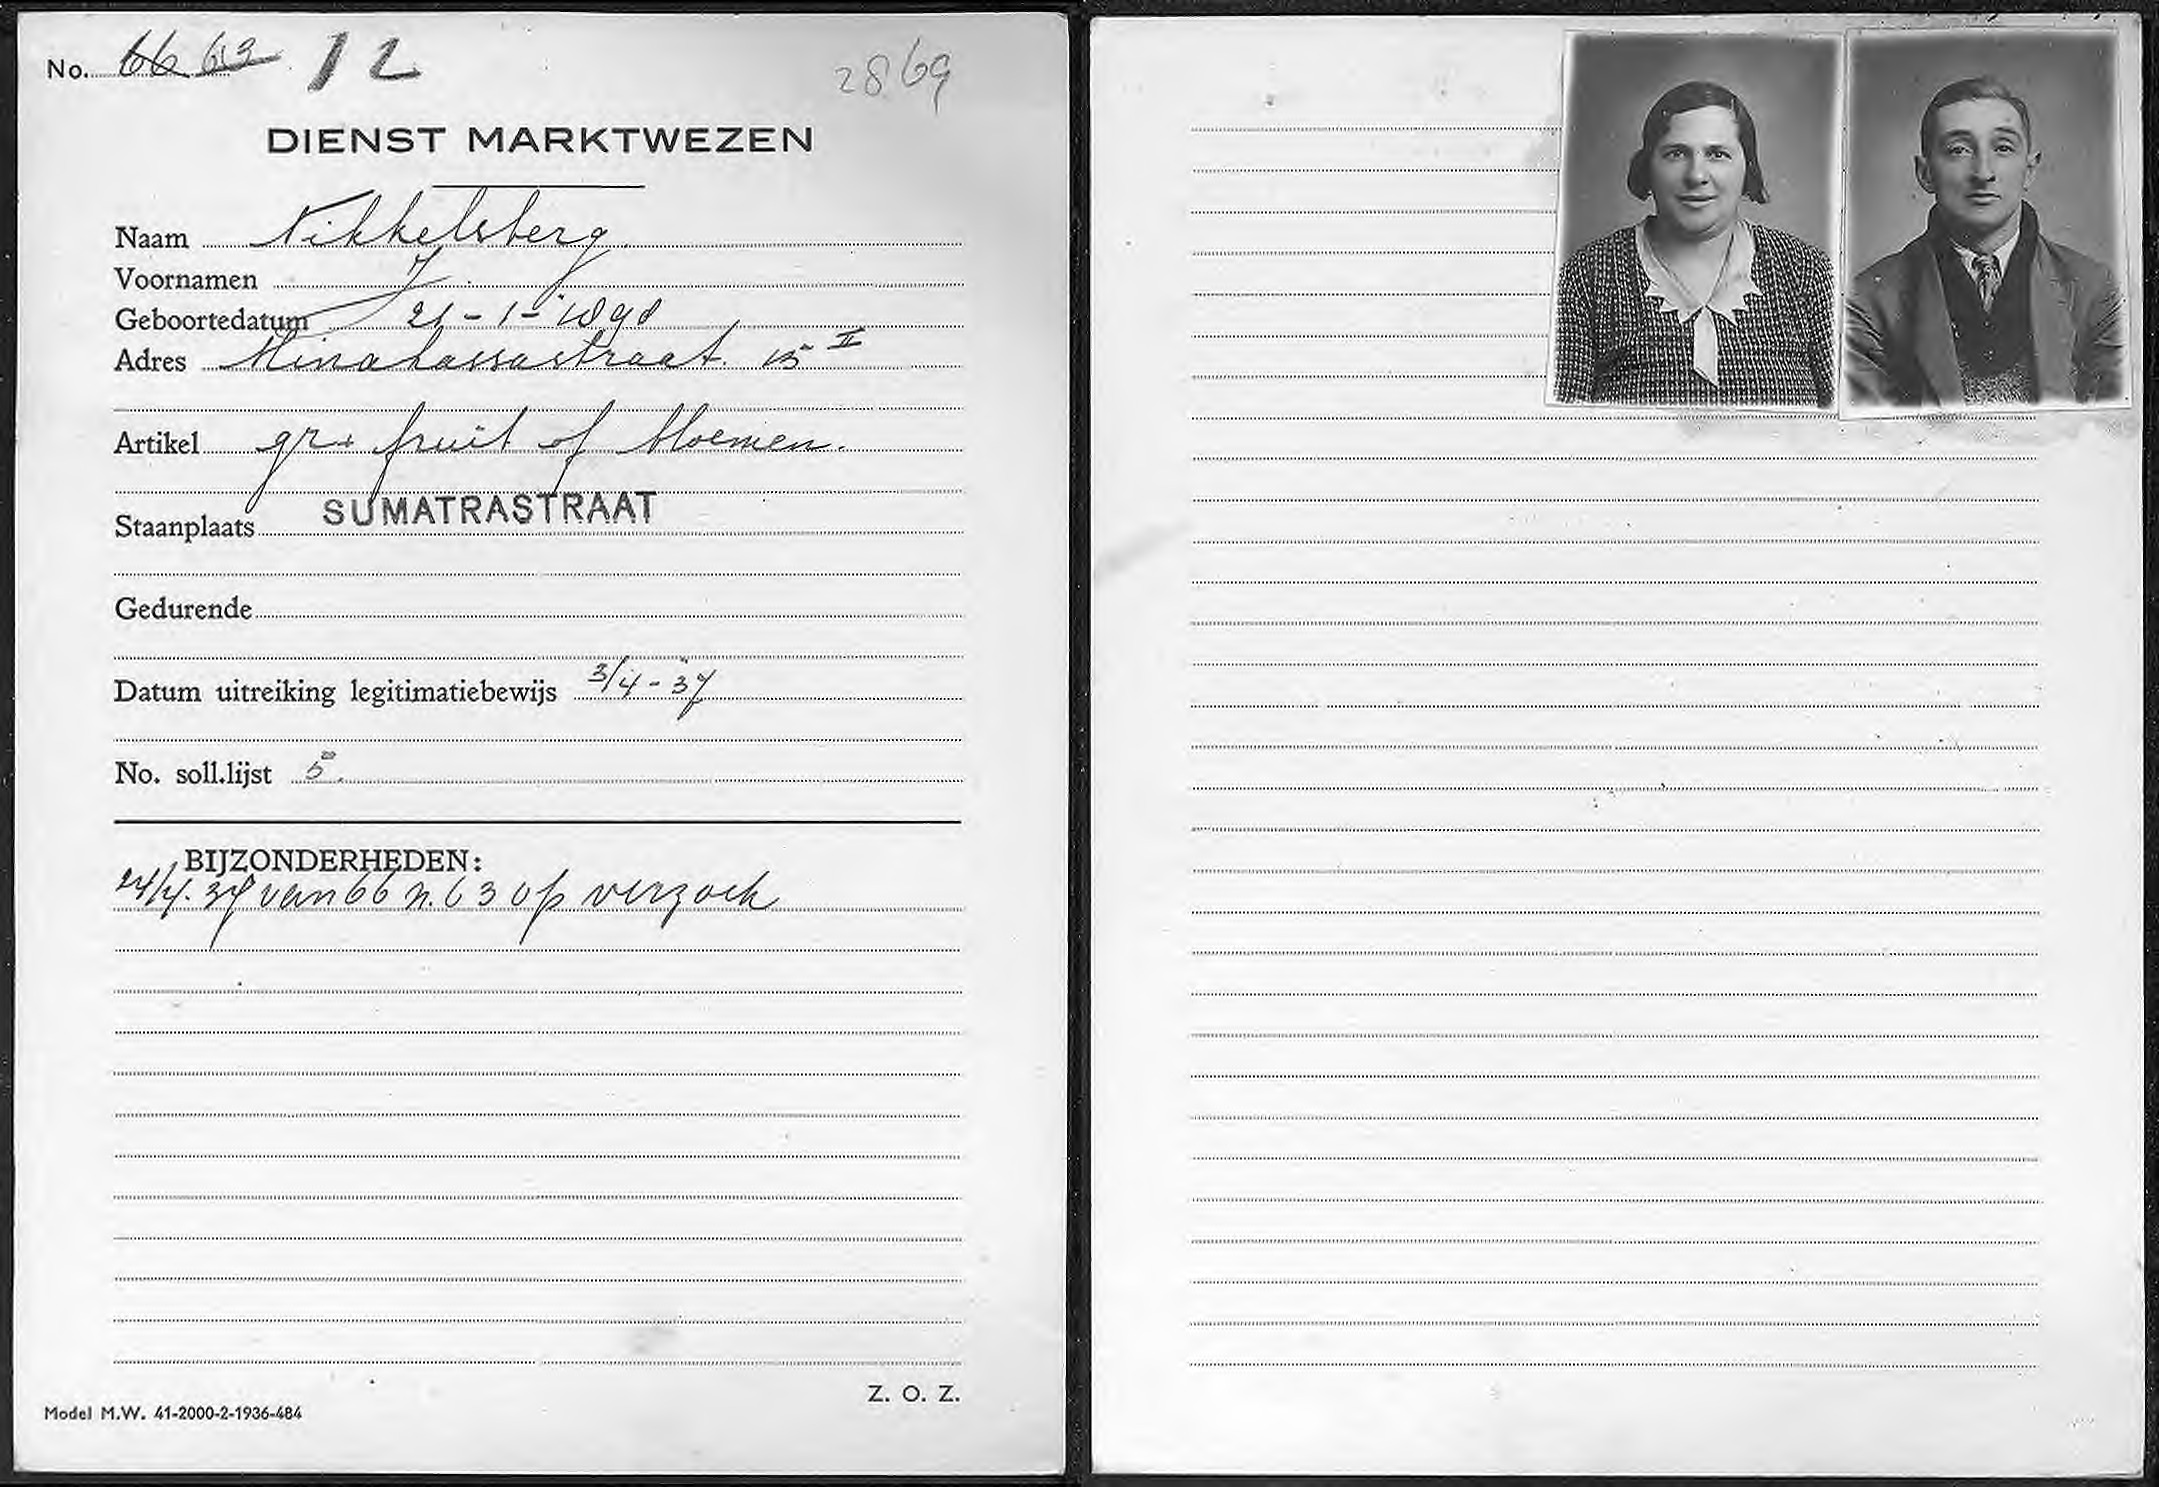 No. 66 63 12 2869
DIENST MARKTWEZEN
Naam Nikkelsberg.
Voornamen J.
Geboortedatum 21-1-1898
Adres Minahassastraat. 15 II
Artikel gr. fruit of bloemen.
Staanplaats SUMATRASTRAAT
Gedurende
Datum uitreiking legitimatiebewijs 3/4-37
No. soll.lijst 5.
BIJZONDERHEDEN:
24/4.37 van 66 n. 63 op verzoek
Z. O. Z.
Model M.W. 41-2000-2-1936-484